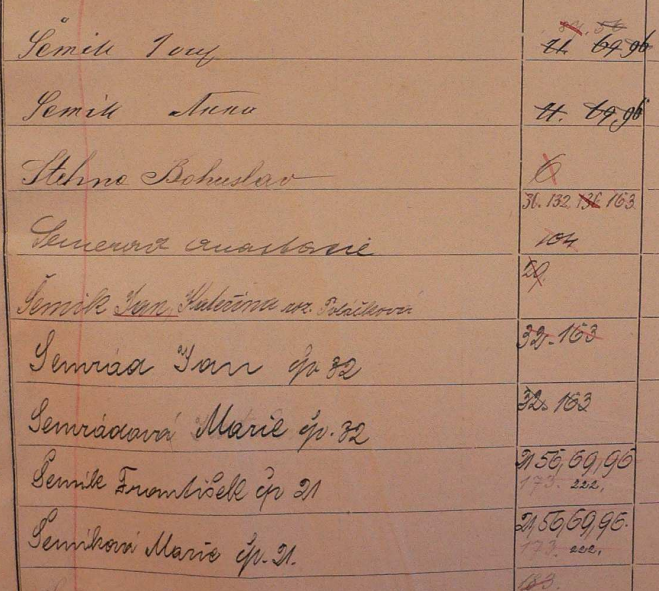 Šemík Josef 71. 69, 96
Šemík Anna 71. 69, 96
Stehno Bohuslav 6
31. 132 136 163
Semerad Anastasie 104
29.
Šemík Jan, Kateřina roz. Poláčková
32. 163
Semrád Jan čp. 32
32. 163
Semrádová Marie čp. 32
21, 56, 69, 96
Semík František čp 21 173. 222.
21, 56, 69, 96.
Semíková Marie čp. 21. 173. 222.
183.